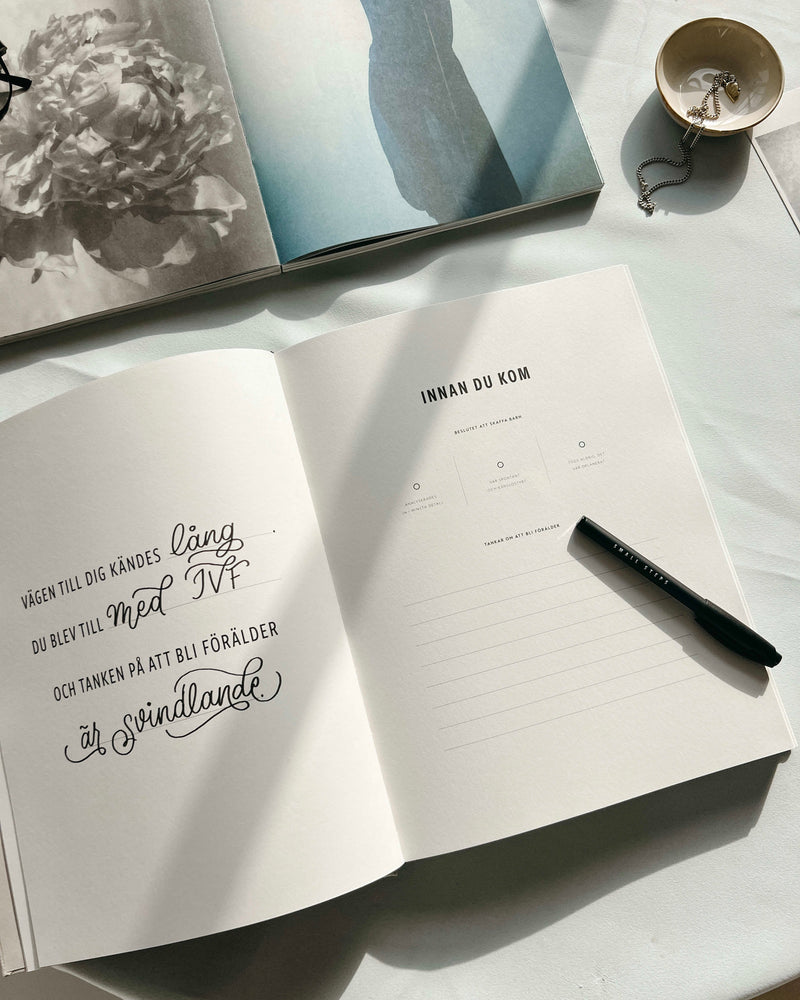 VÄGEN TILL DIG KÄNDES lång.
DU BLEV TILL med IVF
OCH TANKEN PÅ ATT BLI FÖRÄLDER
är svindlande.
INNAN DU KOM
BESLUTET ATT SKAFFA BARN
ANALYSERADES
IN I MINSTA DETALJ
VAR SPONTANT
TOGS ALDRIG, DET
VAR OPLANERAT
TANKAR OM ATT BLI FÖRÄLDER
SMALL STEPS